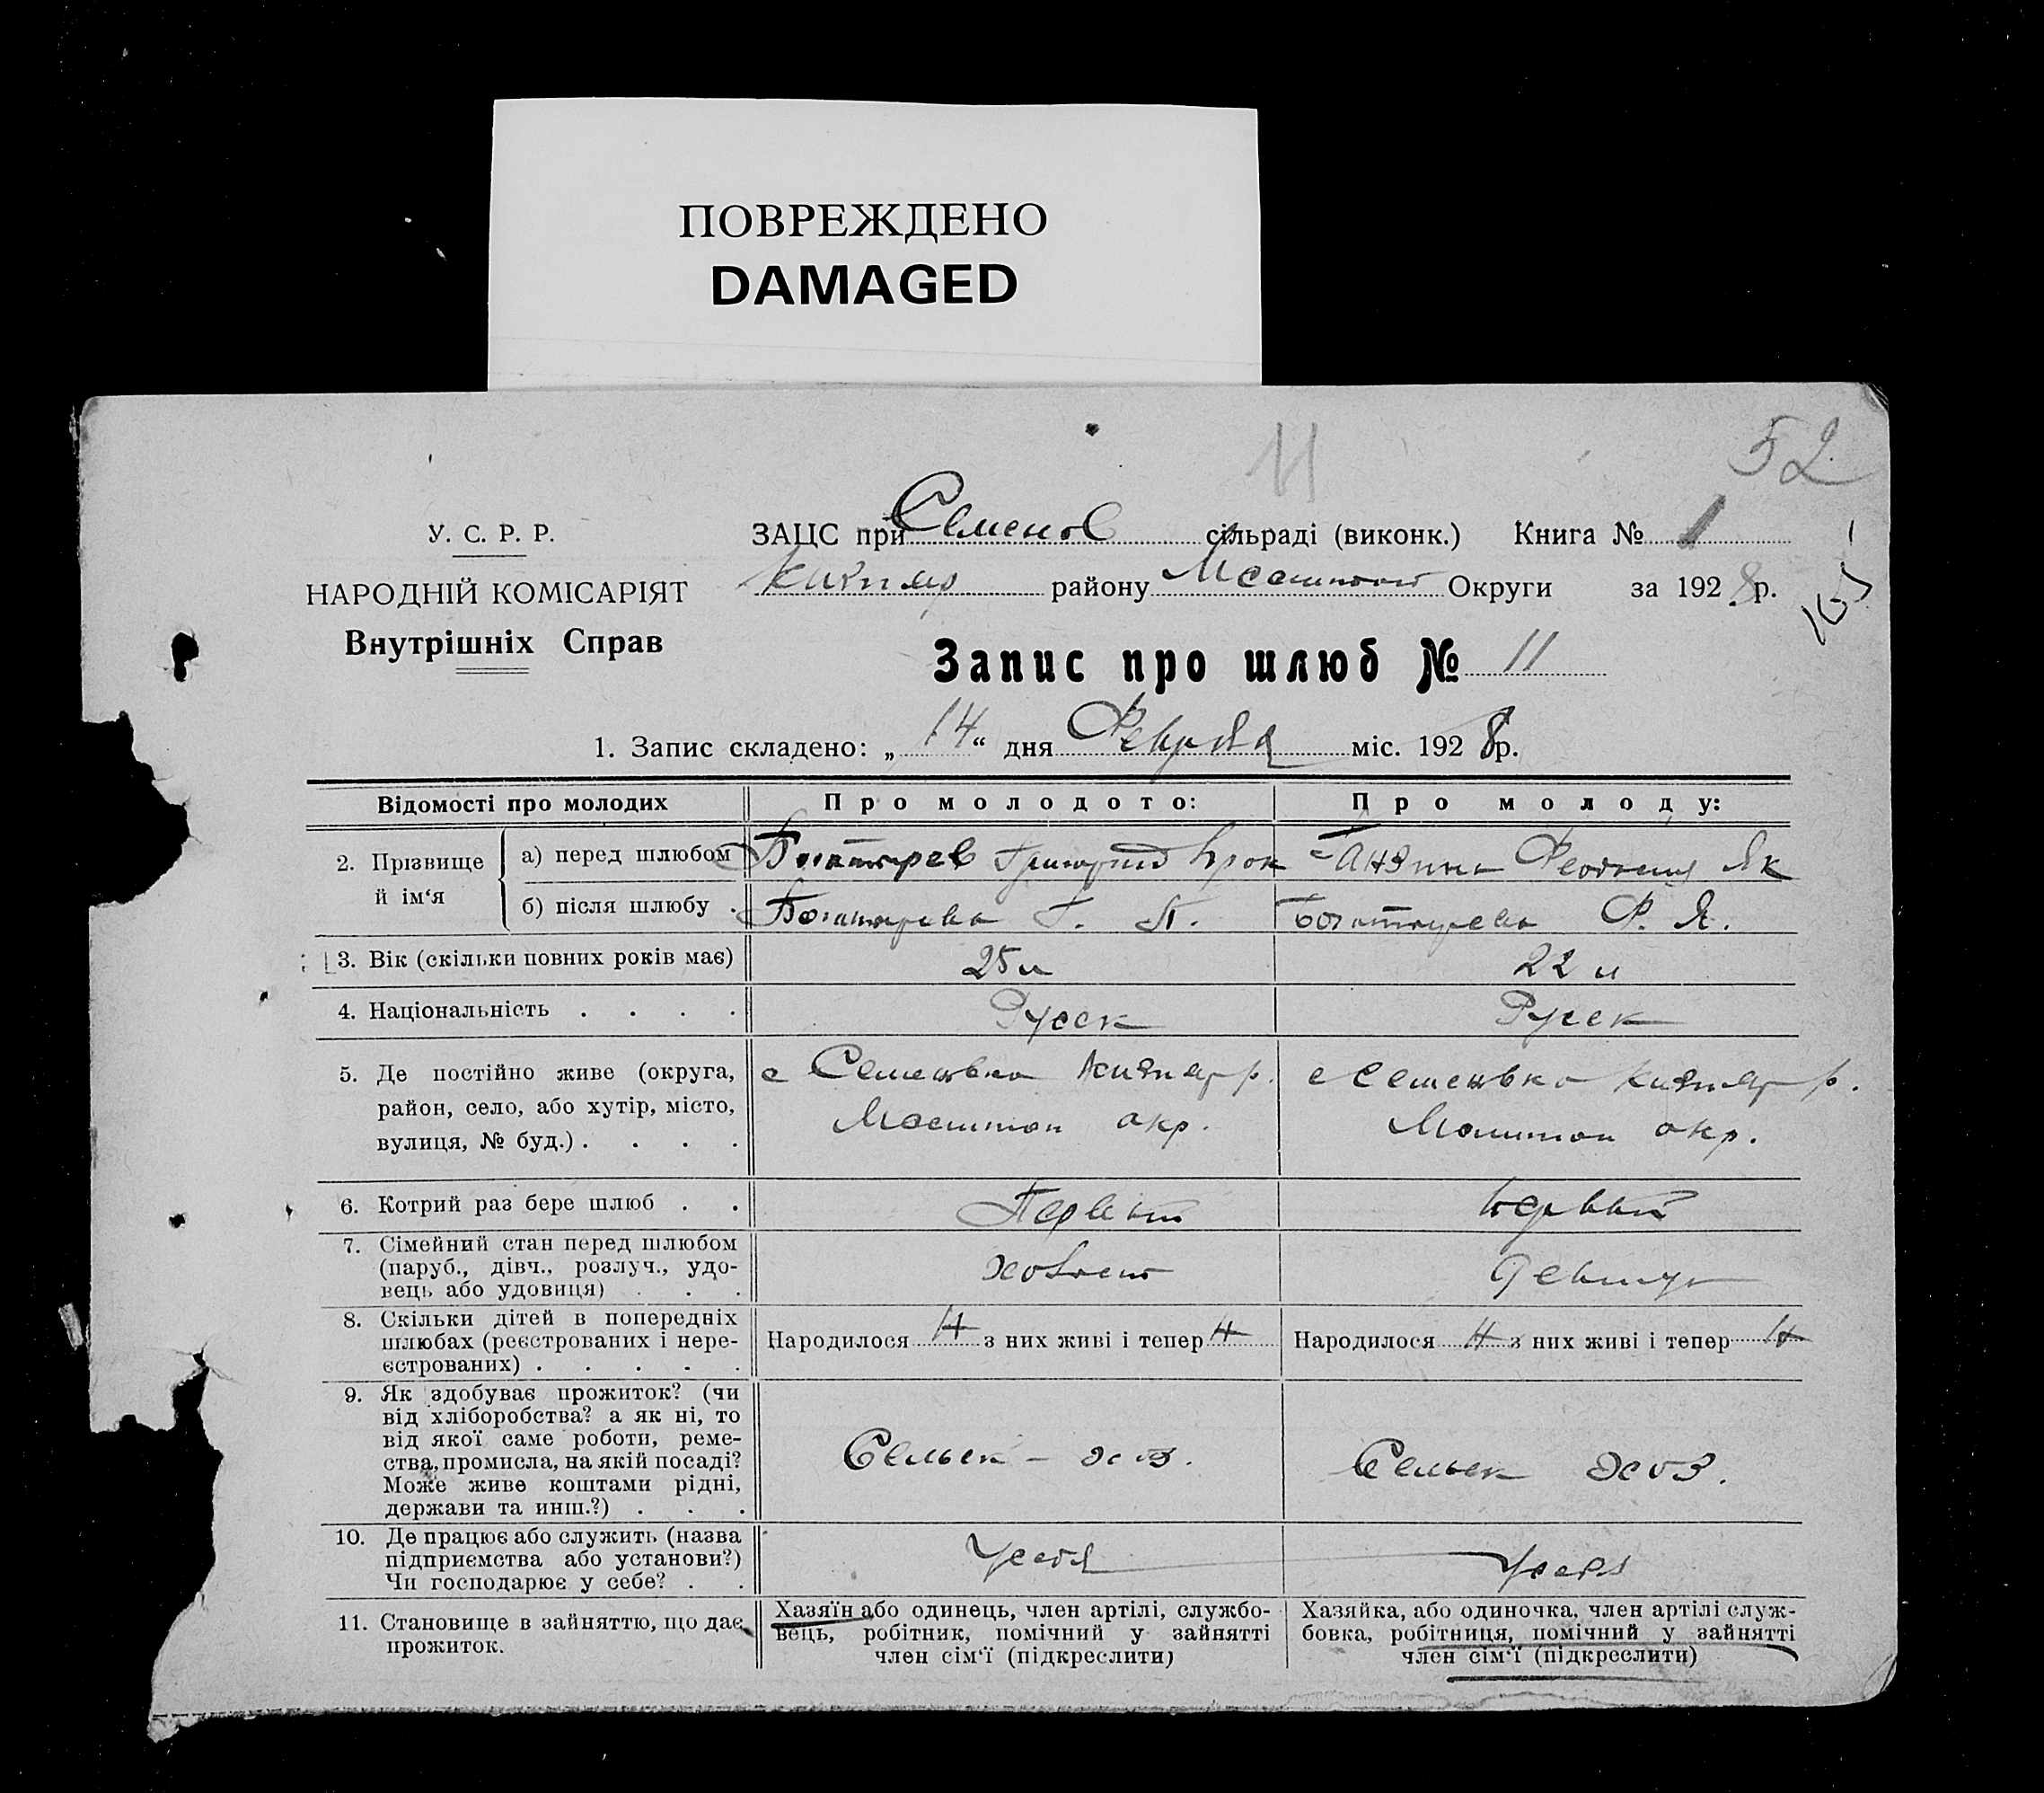 ПОВРЕЖДЕНО
DAMAGED
11
52
У. С. Р. Р.
ЗАЦС при Семенов сільраді (виконк.) Книга № 1
НАРОДНІЙ КОМІСАРІЯТ
району Округи за 1928 р.
Внутрішніх Справ
Запис про шлюб № 11
1. Запис складено: „ 14 “ дня Февраля міс. 1928 р.
Відомості про молодих
Про молодого:
Про молоду:
2. Прізвище й ім‘я
а) перед шлюбом
Богатырев Григорий Прок
Феодосия Як
б) після шлюбу .
Богатырева Г. П.
Богатырева Ф. Я.
3. Вік (скільки повних років має)
25 л
22 л
4. Національність . . . .
Русск
Русск
5. Де постійно живе (округа,
район, село, або хутір, місто,
вулиця, № буд.) . . . .
с Семеновка р.
окр.
с Семеновка р.
окр.
6. Котрий раз бере шлюб . .
Первый
первый
7. Сімейний стан перед шлюбом
(паруб., дівч., розлуч., удо-
вець або удовиця) . . .
холост
девица
8. Скільки дітей в попередніх
шлюбах (реєстрованих і нере-
єстрованих) . . . . .
Народилося з них живі і тепер
Народилося з них живі і тепер
9. Як здобуває прожиток? (чи
від хліборобства? а як ні, то
від якої саме роботи, реме-
ства, промисла, на якій посаді?
Може живе коштами рідні,
держави та инш.?) . . .
Сельск - хоз.
Сельск хоз.
10. Де працює або служить (назва
підприємства або установи?)
Чи господарює у себе? . .
У себя
У себя
11. Становище в зайняттю, що дає
прожиток.
Хазяїн або одинець, член артілі, службо-
вець, робітник, помічний у зайнятті
член сім‘ї (підкреслити)
Хазяйка, або одиночка, член артілі служ-
бовка, робітниця, помічний у зайнятті
член сім‘ї (підкреслити)